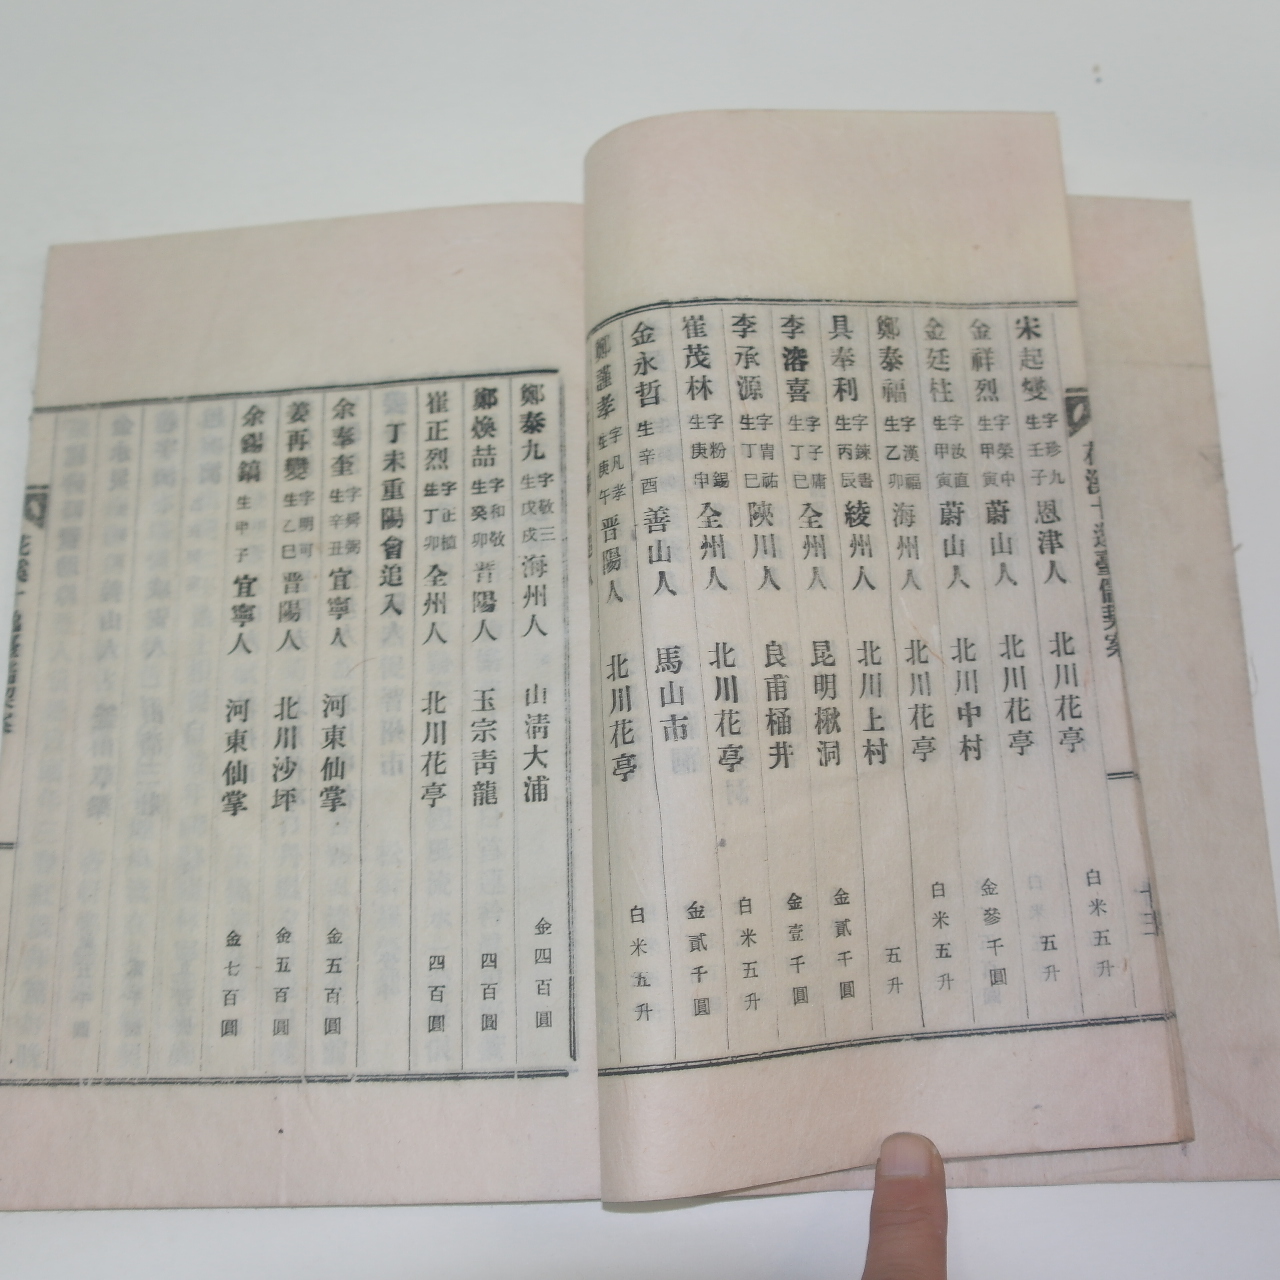 宋起燮 字珍九 生壬子 恩津人 北川花亭 白米五升
金祥烈 字榮中 生甲寅 蔚山人 北川花亭 五升
金廷柱 字汝直 生甲寅 蔚山人 北川中村 金參千圓
鄭泰福 字漢福 生乙卯 海州人 北川花亭 白米五升
具奉利 字鍊書 生丙辰 綾州人 北川上村 五升
李溶喜 字子庸 生丁巳 全州人 昆明楸洞 金貳千圓
李承源 字胄祐 生丁巳 陝川人 良甫桶井 金壹千圓
崔茂林 字粉錫 生庚申 全州人 北川花亭 白米五升
金永哲 生辛酉 善山人 馬山市 金貳千圓
鄭謹孝 字凡孝 生庚午 晋陽人 北川花亭 白米五升
鄭泰九 字敬三 生戊戌 海州人 山淸大浦 金四百圓
鄭煥喆 字和敬 生癸卯 晋陽人 玉宗靑龍 四百圓
崔正烈 字正植 生丁卯 全州人 北川花亭 四百圓
丁未重陽會追入
余奉奎 字舜弼 生辛丑 宜寧人 河東仙掌 金五百圓
姜再變 字明可 生乙巳 晋陽人 北川沙坪 金五百圓
余錫鎬 生甲子 宜寧人 河東仙掌 金七百圓